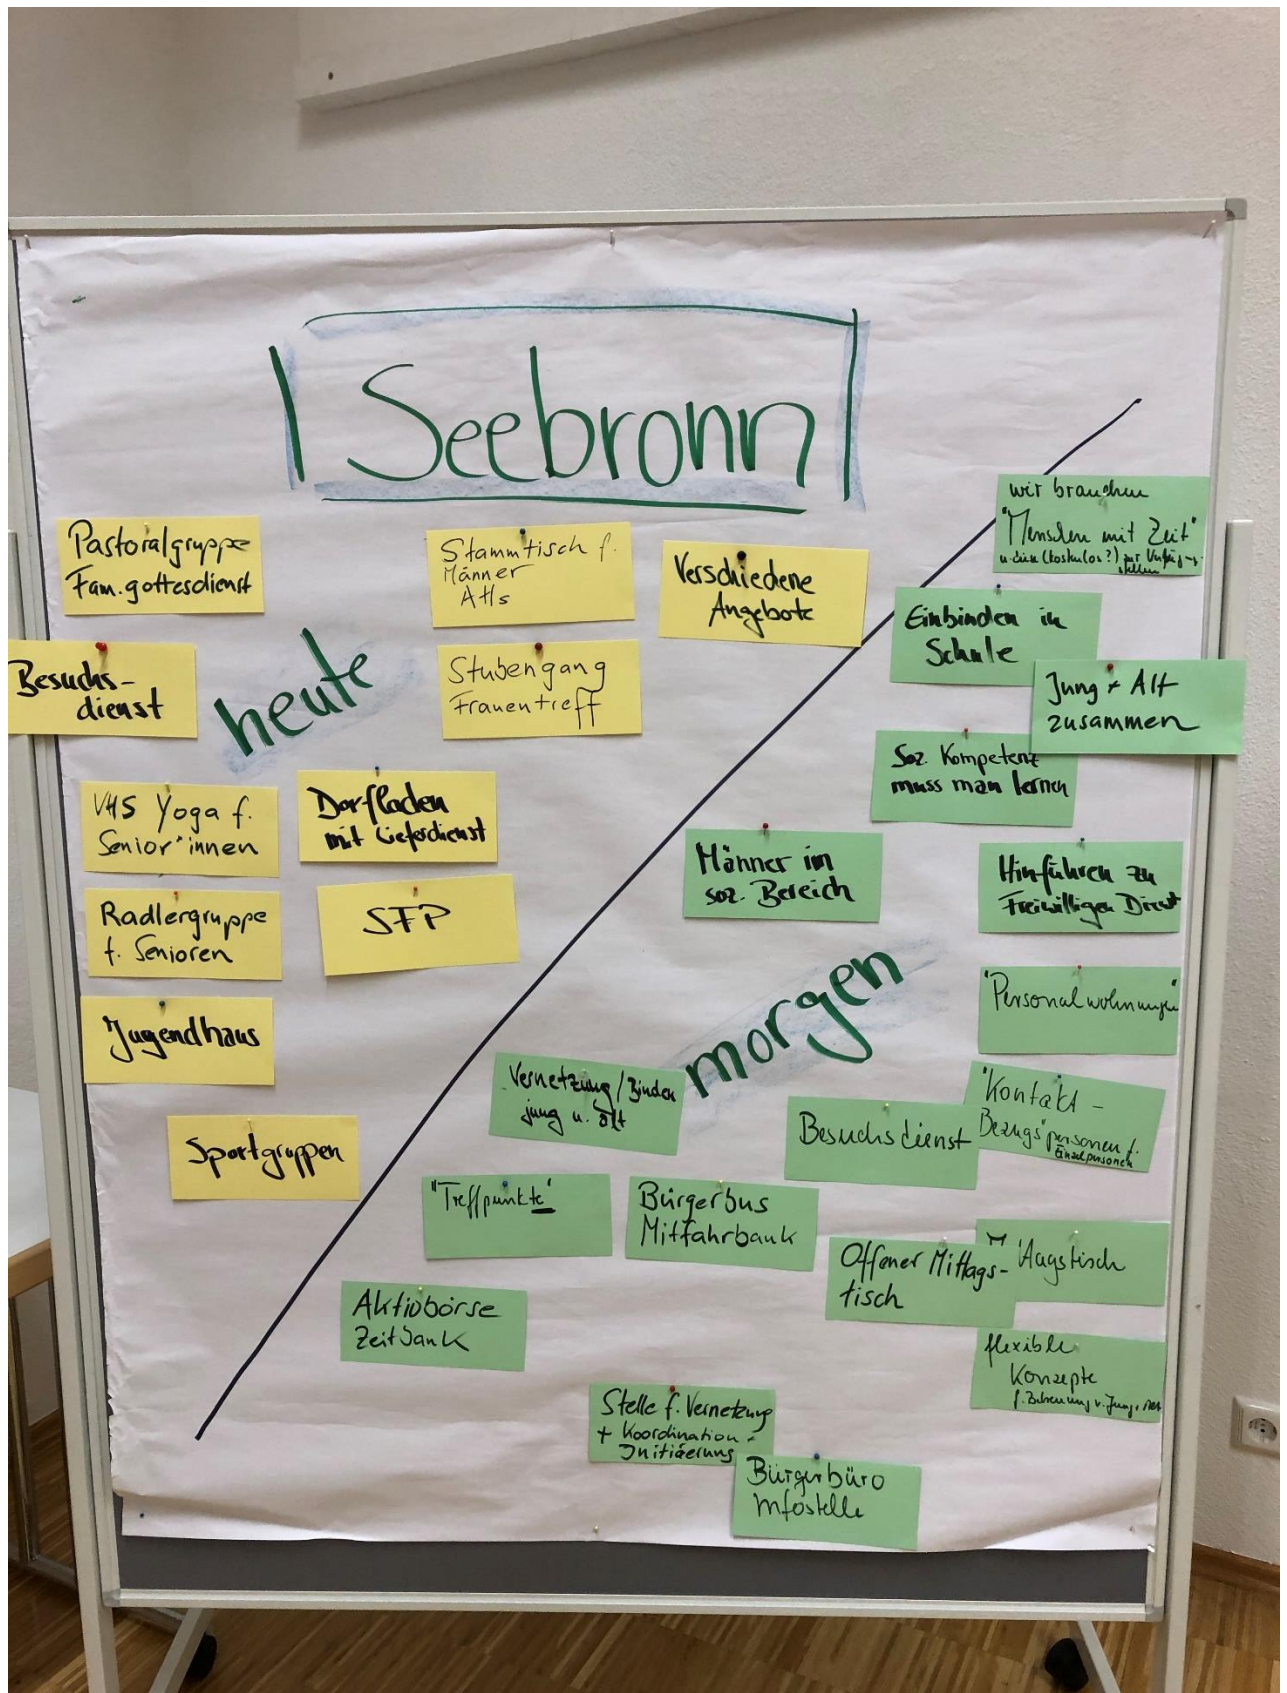 Seebronn
Pastoralgruppe
Fam.gottesdienst
Stammtisch f.
Männer
AHs
Verschiedene
Angebote
Besuchs-
dienst
heute
Stubengang
Frauentreff
VHS Yoga f.
Senior*innen
Dorfladen
mit Lieferdienst
Radlergruppe
f. Senioren
SFP
Jugendhaus
Sportgruppen
wir brauchen
"Menschen mit Zeit"
(kostenlos?) zur
stellen
Einbinden in
Schule
Jung + Alt
zusammen
Soz. Kompetenz
muss man lernen
Männer im
soz. Bereich
Hinführen zu
Freiwilligen Dienst
morgen
"Personalwohnungen"
Vernetzung/Binden
jung u. alt
"Kontakt-
Bezugs"personen f.
Einzelpersonen
Besuchsdienst
"Treffpunkte"
Bürgerbus
Mitfahrbank
Offener Mittags-
tisch
Aktivbörse
Zeitbank
flexible
Konzepte
Stelle f. Vernetzung
+ Koordination +
Initiierung
Bürgerbüro
Infostelle